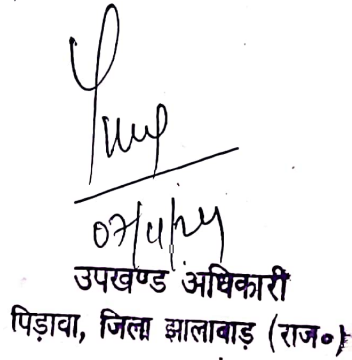 07/11/24
उपखण्ड अधिकारी
पिड़ावा, जिला झालावाड़ (राज०)